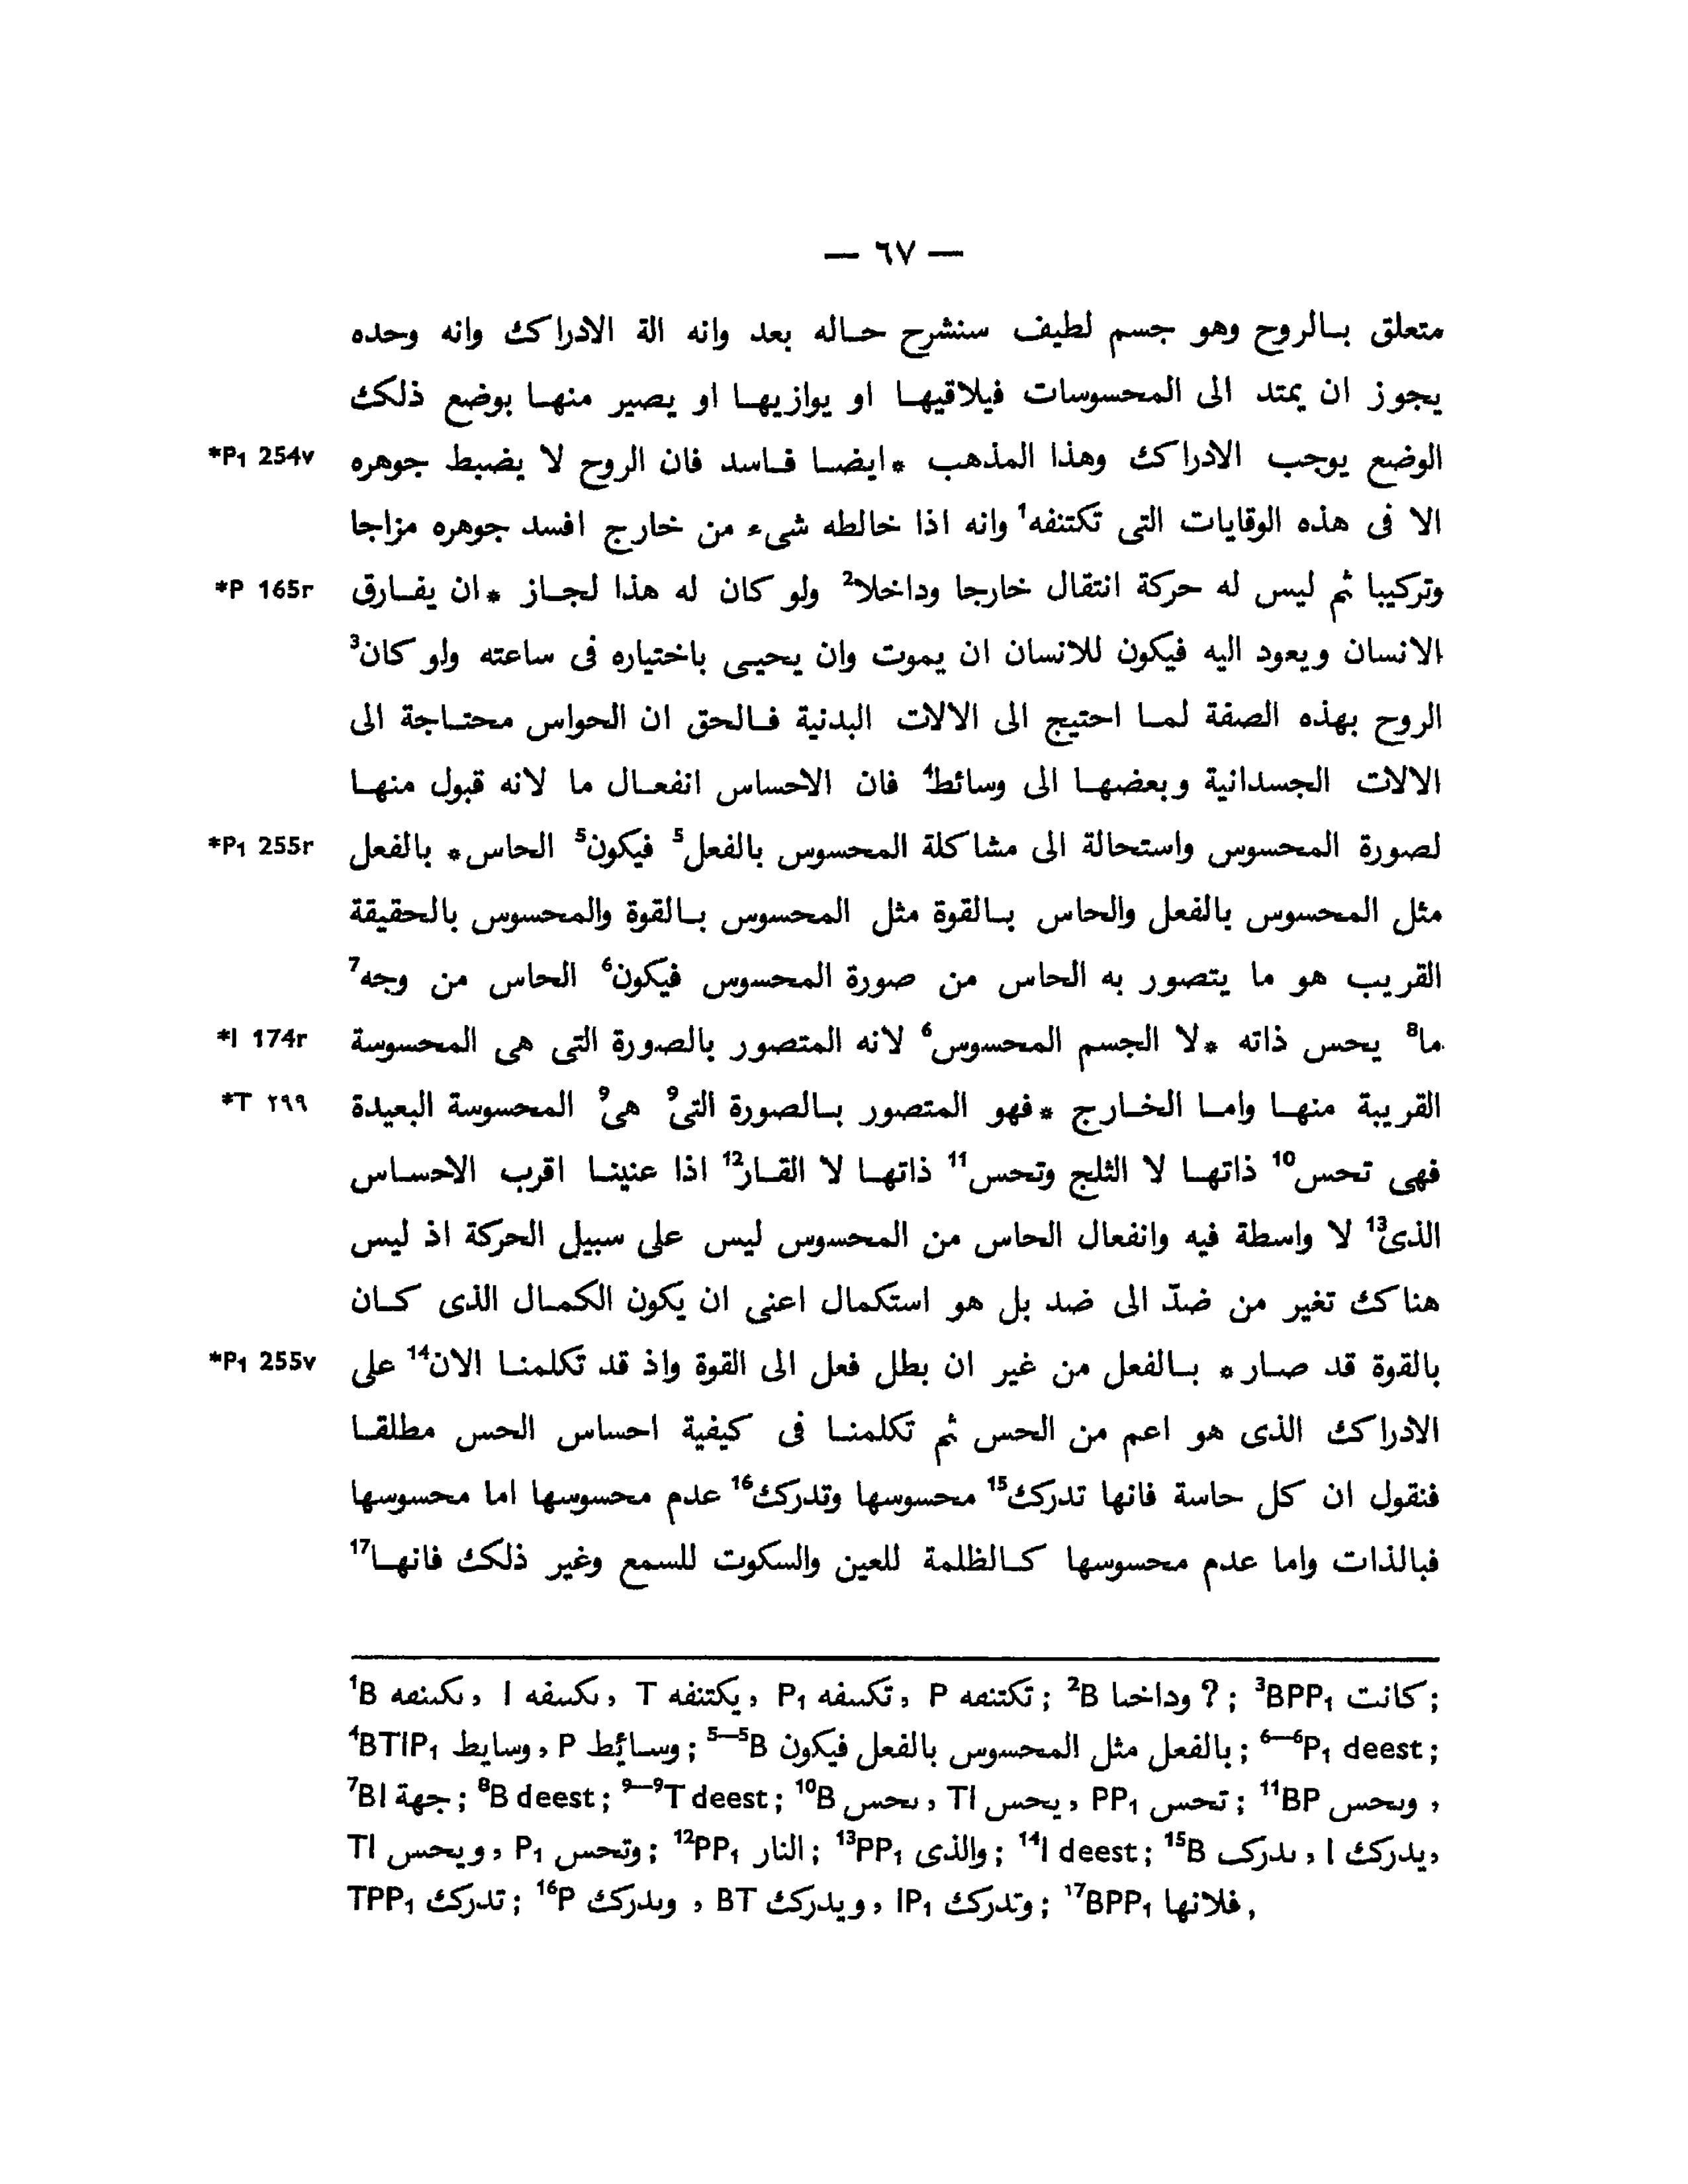 — ٦٧ —
متعلق بالروح وهو جسم لطيف سنشرح حاله بعد وانه الة الادراك وانه وحده
يجوز ان يمتد الى المحسوسات فيلاقيها او يوازيها او يصير منها بوضع ذلك
الوضع يوجب الادراك وهذا المذهب *ايضا فاسد فان الروح لا يضبط جوهره *P₁ 254v
الا فى هذه الوقايات التى تكتنفه¹ وانه اذا خالطه شىء من خارج افسد جوهره مزاجا
وتركيبا ثم ليس له حركة انتقال خارجا وداخلا² ولو كان له هذا لجاز *ان يفارق *P 165r
الانسان ويعود اليه فيكون للانسان ان يموت وان يحيى باختياره فى ساعته ولو كان³
الروح بهذه الصفة لما احتيج الى الالات البدنية فالحق ان الحواس محتاجة الى
الالات الجسدانية وبعضها الى وسائط⁴ فان الاحساس انفعال ما لانه قبول منها
لصورة المحسوس واستحالة الى مشاكلة المحسوس بالفعل⁵ فيكون⁵ الحاس* بالفعل *P₁ 255r
مثل المحسوس بالفعل والحاس بالقوة مثل المحسوس بالقوة والمحسوس بالحقيقة
القريب هو ما يتصور به الحاس من صورة المحسوس فيكون⁶ الحاس من وجه⁷
ما⁸ يحس ذاته *لا الجسم المحسوس⁶ لانه المتصور بالصورة التى هى المحسوسة *I 174r
القريبة منها واما الخارج *فهو المتصور بالصورة التى⁹ هى⁹ المحسوسة البعيدة *T ٢٩٩
فهى تحس¹⁰ ذاتها لا الثلج وتحس¹¹ ذاتها لا القار¹² اذا عنينا اقرب الاحساس
الذى¹³ لا واسطة فيه وانفعال الحاس من المحسوس ليس على سبيل الحركة اذ ليس
هناك تغير من ضدّ الى ضد بل هو استكمال اعنى ان يكون الكمال الذى كان
بالقوة قد صار * بالفعل من غير ان بطل فعل الى القوة واذ قد تكلمنا الان¹⁴ على *P₁ 255v
الادراك الذى هو اعم من الحس ثم تكلمنا فى كيفية احساس الحس مطلقا
فنقول ان كل حاسة فانها تدرك¹⁵ محسوسها وتدرك¹⁶ عدم محسوسها اما محسوسها
فبالذات واما عدم محسوسها كالظلمة للعين والسكوت للسمع وغير ذلك فانها¹⁷
¹B , I , T يكتنفه , P₁ , P ; ²B ? ; ³BPP₁ كانت ;
⁴BTIP₁ وسايط , P وسائط ; ⁵—⁵B بالفعل مثل المحسوس بالفعل فيكون ; ⁶—⁶P₁ deest ;
⁷BI جهة ; ⁸B deest ; ⁹—⁹T deest ; ¹⁰B , TI يحس , PP₁ تحس ; ¹¹BP ,
TI ويحس , P₁ وتحس ; ¹²PP₁ النار ; ¹³PP₁ والذى ; ¹⁴I deest ; ¹⁵B , I يدرك ,
TPP₁ تدرك ; ¹⁶P , BT ويدرك , IP₁ وتدرك ; ¹⁷BPP₁ فلانها ,